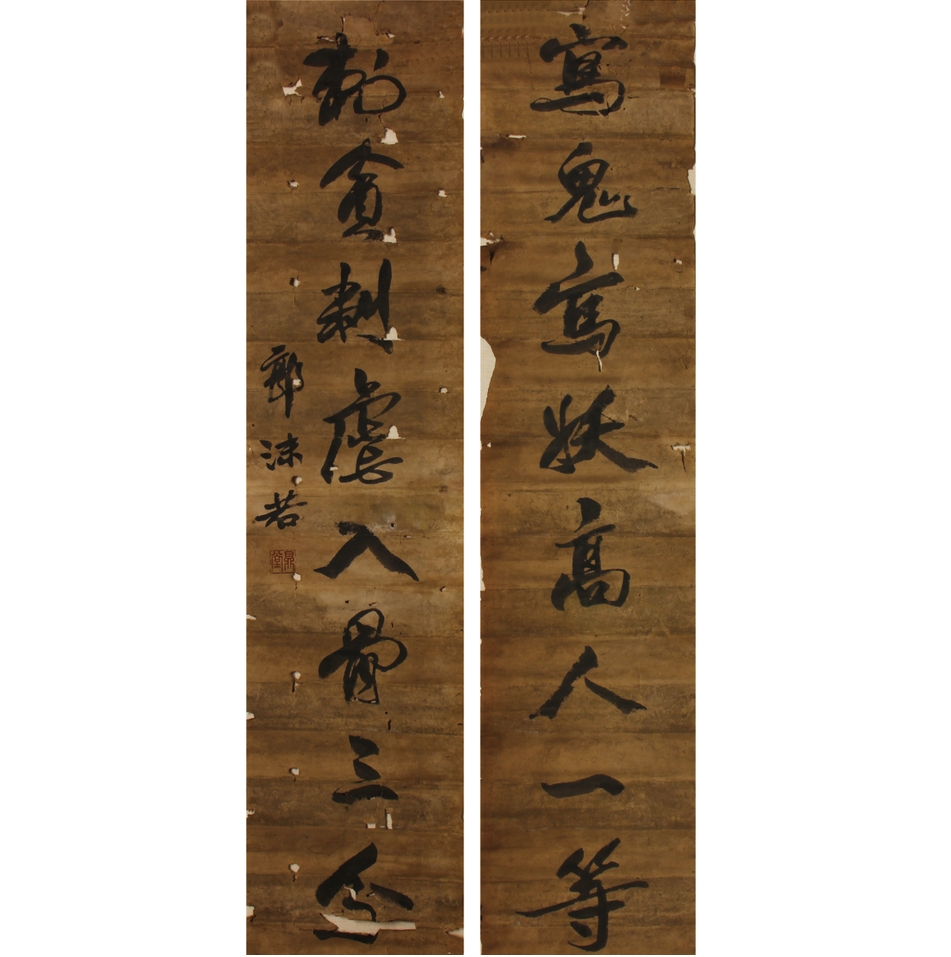 寫鬼寫妖高人一等
刺貪刺虐入骨三分
郭沫若
鼎堂